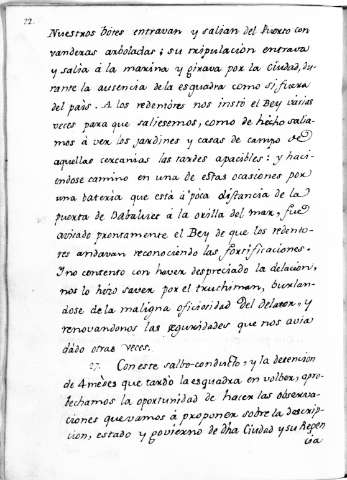 22.
Nuestros botes entravan y salian del Puerto con
vanderas arboladas; su tripulacion entrava
y salia á la marina y girava por la Ciudad, du-
rante la ausencia de la esquadra como si fuera
del pais. A los redentores nos instó el Bey varias
veces para que saliesemos, como de hecho salia-
mos á ver los jardines y casas de campo de
aquellas cercanias las tardes apacibles: y haci-
endose camino en una de estas ocasiones por
una bateria que está á poca distancia de la
puerta de Babaluet á la orilla del mar, fue
avisado prontamente el Bey de que los redento-
res andavan reconociendo las fortificaciones.
Y no contento con haver despreciado la delacion,
nos lo hizo saver por el truchiman, burlan-
dose de la maligna oficiosidad del delator, y
renovandonos las seguridades que nos avia
dado otras veces.
27. Con este salbo-conducto, y la detencion
de 4 medes que tardó la esquadra en volber, apro-
bechamos la oportunidad de hacer las observa-
ciones que vamos á proponer sobre la descrip-
cion, estado y govierno de dha Ciudad y su Regen
cia